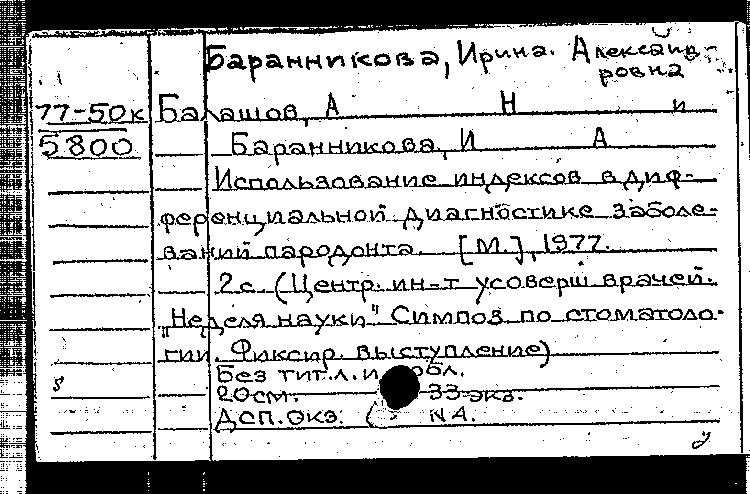 Баранникова, Ирина Александ-
ровна
77-50к Балашов, А Н и
5800 Баранникова, И А
Использование индексов в диф-
ференциальной диагностике заболе-
ваний пародонта. [М.], 1977.
2 с. (Центр. ин-т усоверш врачей.
"Неделя науки" Симпоз по стоматоло-
гии. Фиксир. выступление)
Без тит. л. и обл.
8 20 см. 33 экз.
Деп. экз. NA.